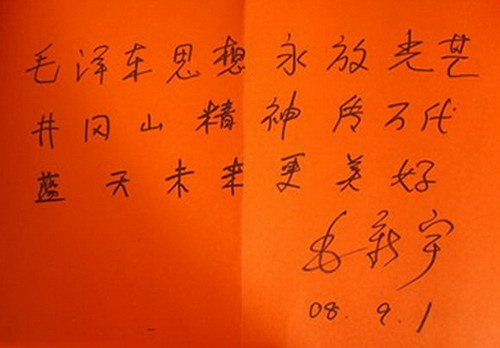 毛泽东思想永放光芒
井冈山精神传万代
蓝天未来更美好
毛新宇
08.9.1